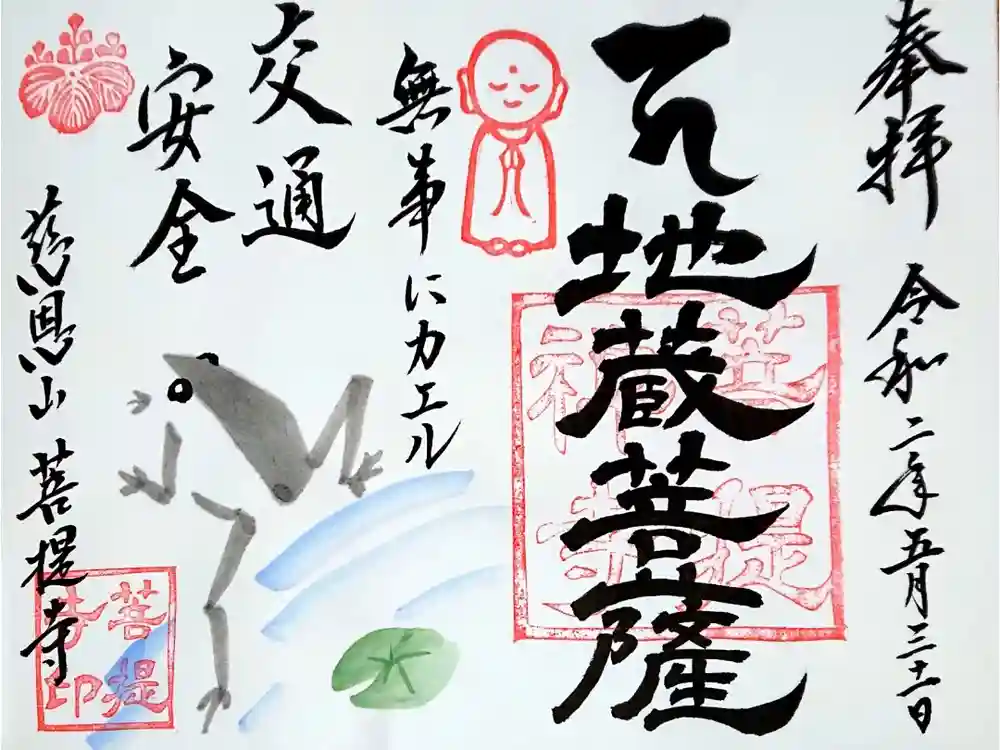 奉拝 令和二年五月三十一日
地蔵菩薩
菩提
禅寺
無事にカエル
交通
安全
慈恩山 菩提寺
菩提
寺印